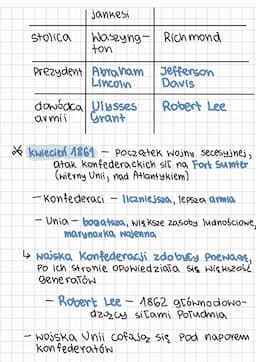 jankesi
stolica Waszyng- Richmond
ton
Prezydent Abraham Jefferson
Lincoln Davis
dowódca Ulysses Robert Lee
armii Grant
* kwiecień 1861 – początek wojny secesyjnej,
atak konfederackich sił na Fort Sumter
(wierny Unii, nad Atlantykiem)
– Konfederaci – liczniejsza, lepsza armia
– Unia – bogatsza, większe zasoby ludnościowe,
marynarka wojenna
↳ wojska Konfederacji zdobyły przewagę,
po ich stronie opowiedziała się większość
generałów
– Robert Lee – 1862 głównodowo-
dzący siłami Południa
– wojska Unii cofają się pod naporem
konfederatów